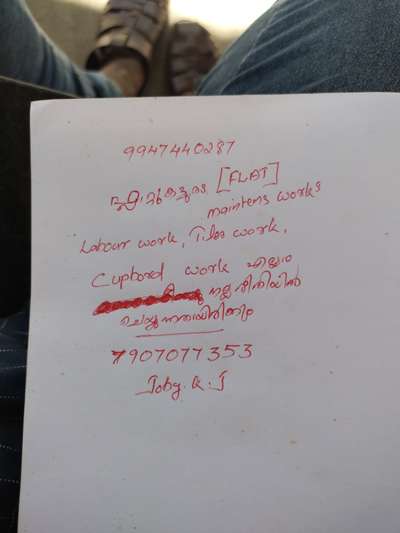 9947440287
ഫ്ലാറ്റുകളുടെ [FLAT]
maintens works
Labour work, Tiles work,
Cupbord work എല്ലാം
നല്ല രീതിയിൽ
ചെയ്യുന്നതായിരിക്കും
7907077353
Joby. K. J